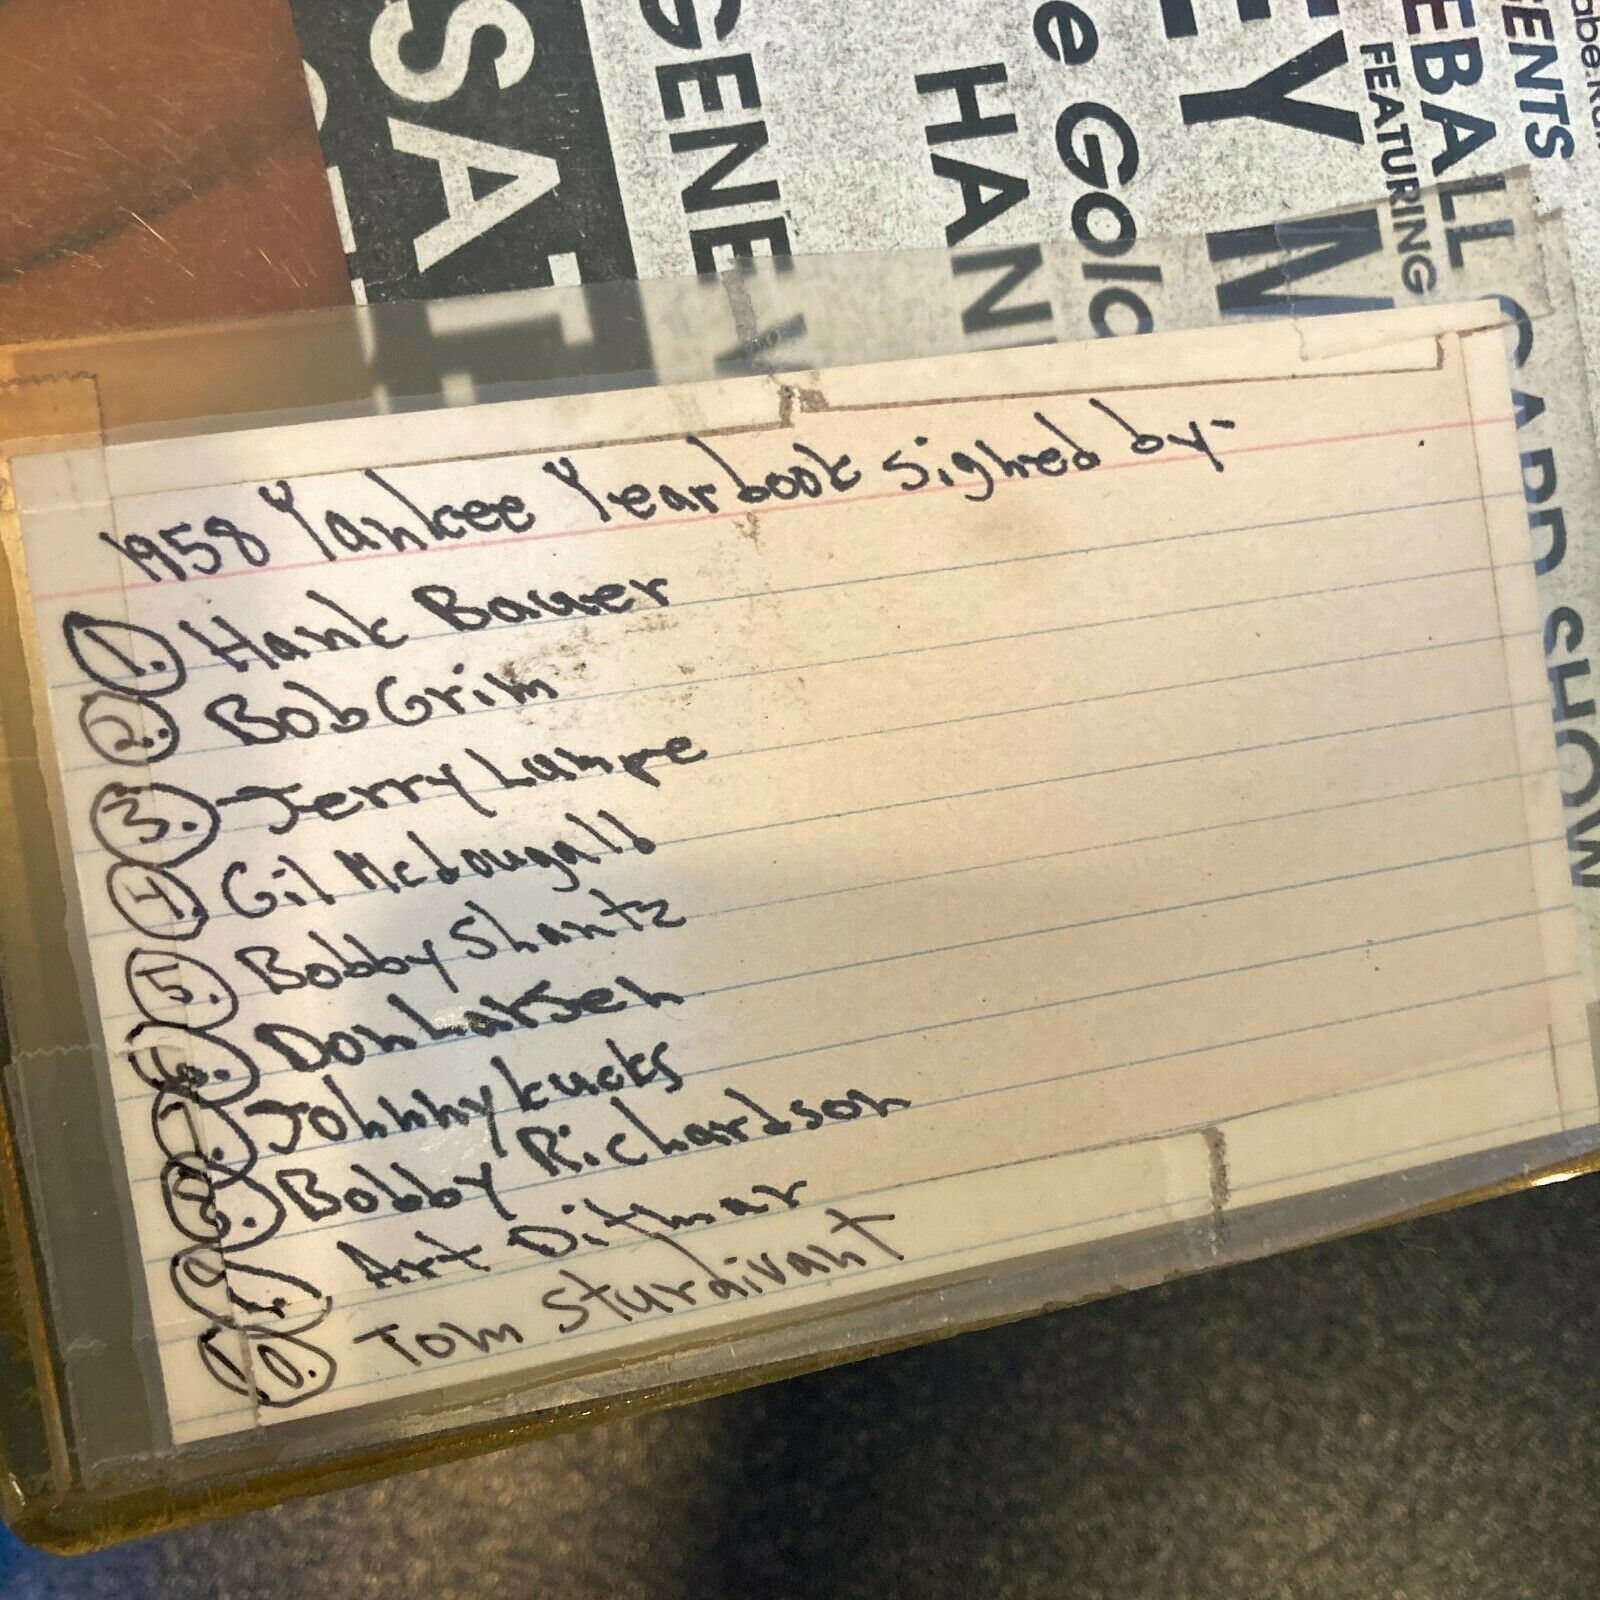 SAT
GENE
V
e Gold
HAN
EY M
FEATURING
EBALL CARD SHOW
ENTS
1958 Yankee Yearbook signed by-
1. Hank Bauer
2. Bob Grim
3. Jerry Lumpe
4. Gil McDougald
5. Bobby Shantz
6. Don Larsen
7. Johnny Kucks
8. Bobby Richardson
9. Art Ditmar
10. Tom Sturdivant